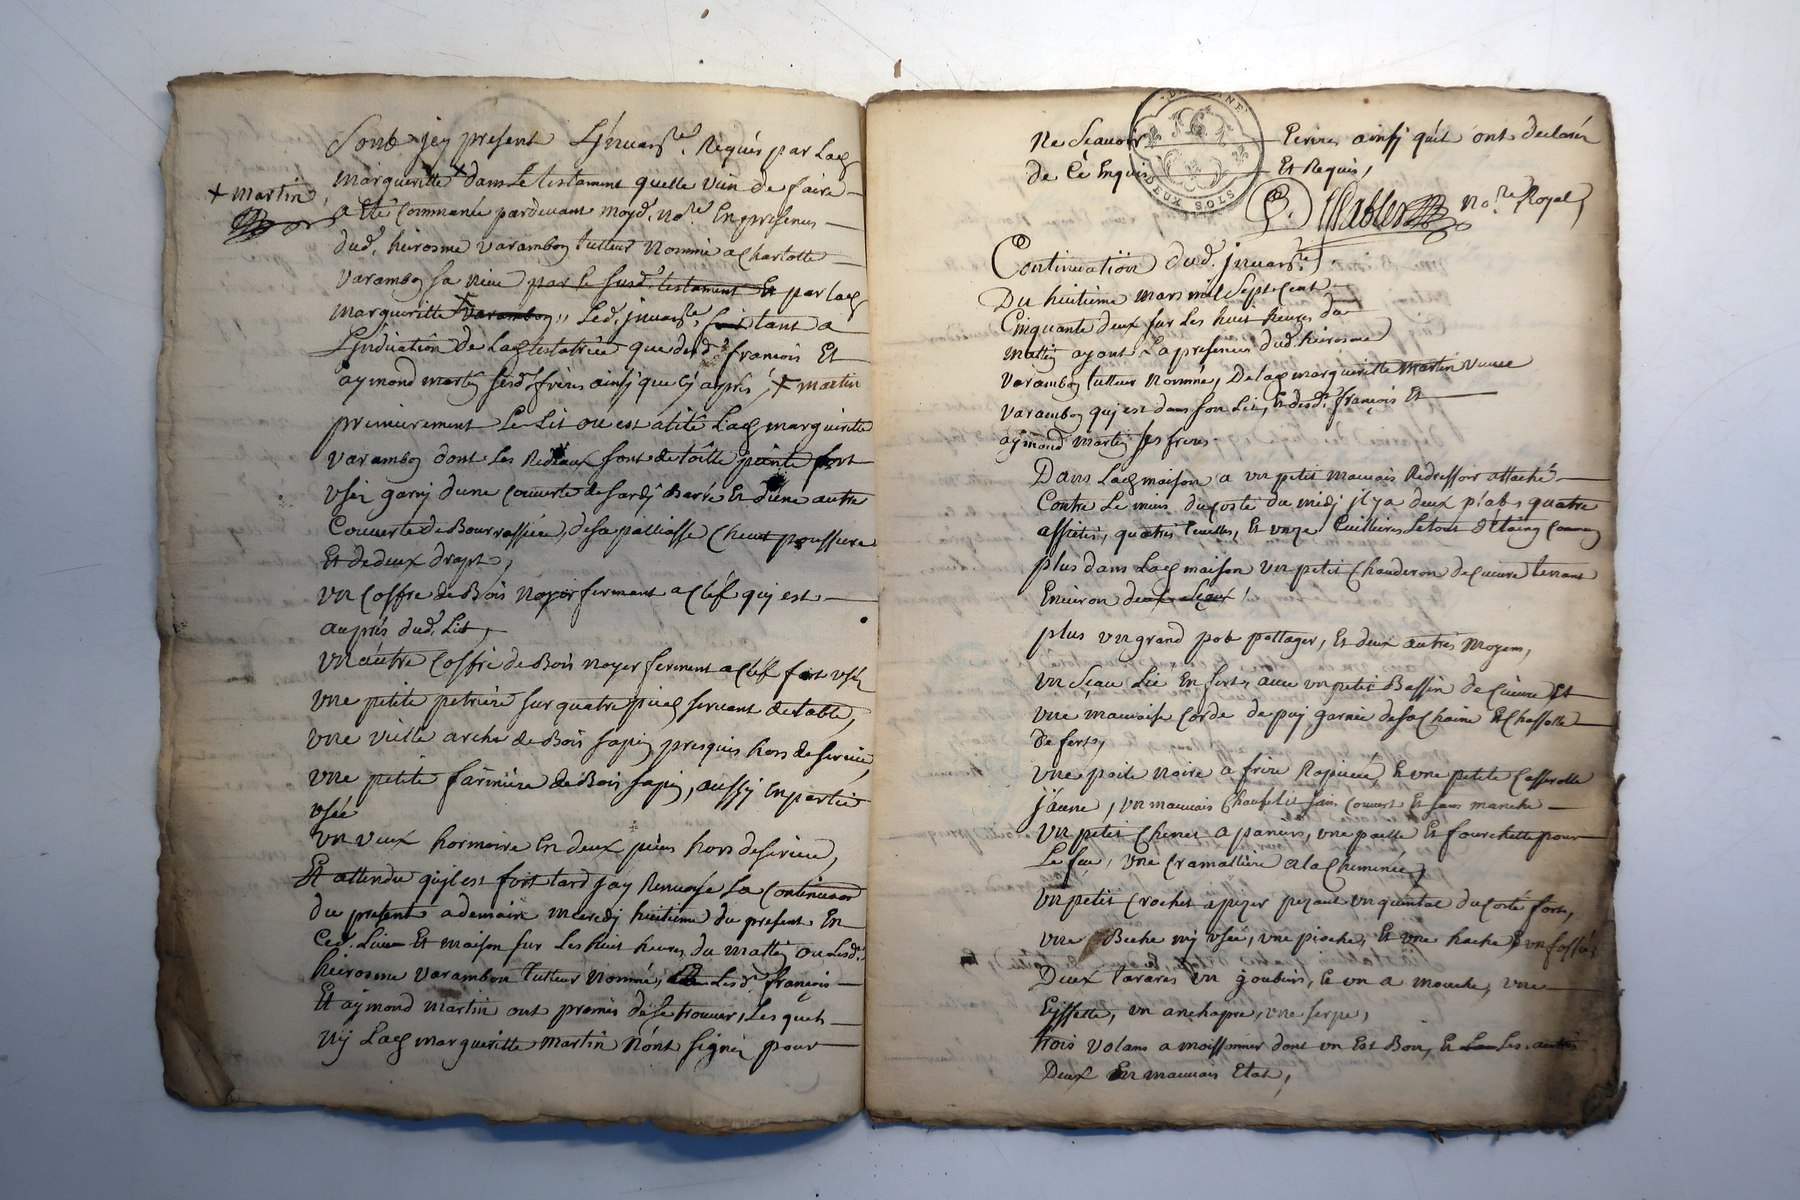 Sont jcy present L'jnuantre. Requis par Lad
+ martin
margueritte + dans Le testament quelle vien de faire
a Eté Commancé pardeuant moyd. nore En presence
dud. heirosme varambon tutteur Nommé a Charlotte
varambon sa niece par le susd. testament Et par lad
margueritte varambon Led. jnuantre. fait tant a
L'Indication de Lad testatrice que desd. francois Et
aymond martin sesd. freres ainsy que cy apres, + martin
premierement Le Lit ou est alité Lad margueritte
varambon dont Les Rideaux sont de toille peinte fort
usez garny d'une Couuerte de sardy Barré Et d'une autre
Couuerte de Bourrassiere, de sa palliasse Cheuet poussiere
Et de deux draps,
un Coffre de Bois Noyer fermant a Clef quj est
aupres dud. Lit,
un autre Coffre de Bois noyer ferment a Clef fort usez
une petite petriere sur quatre pied seruant de table,
une vieille arche de Bois sapin presques hors de seruice,
une petite fariniere de Bois sapin, aussy En partie
usée
un vieux hormoire En deux pieces hors de seruice,
Et attendu qujl est fort tard J'ay Renuoyé La Continuaon
du present a demain mecredy huitieme du present En
Ced. Lieu Et maison sur Les huit heures du mattin ou Led.
heirosme varambon tutteur Nommé, Lesd. françois
Et aymond martin ont promis de se trouuer, Lesquels
nij Lad margueritte martin N'ont signez pour
Ne Scauoir Ecrire ainsy qu'il ont declarés
de Ce Enquis Et Requis,
DEUX SOLS
Nore Royal,
Continuation dud. jnuantre.
Du huitieme mars mil Sept Cent
Cinquante deux sur Les huit heures du
mattin ayant La presence dud. heirosme
varambon tutteur Nommé, De lad margueritte martin veuue
varambon quj est dans son Lit, Et desd. françois Et
aymond martin ses freres
Dans Lad maison a un petit mauuais Redressoir attaché
Contre Le mur du Costé du midj jl y a deux plats quatre
assietes, quatres Ceuelles, Et unze Cuillieres Le tout d'Etaing Commun
plus dans Lad maison un petit Chauderon de Cuiure tenant
Enuiron deux seaux
plus un grand pot pottager, Et deux autres moyens,
un Seau Lié En fert, auec un petit Bassin de Cuiure Et
une mauuaise Corde de puy garnie de sa Chaine Et Chassette
de fert,
une poile noire a frire Rapiecée, Et une petite Casserolle
jaune, un mauuais Chaufelit sans Couuert Et sans manche
un petit Chenet a paniers, une paelle Et fourchette pour
Le feu, une Cramalliere a la Cheminée,
un petit Crochet a pezer pezant un quintal du Costé fort,
une Beche mj usée, une pioche, Et une hache, Et un fossoir
Deux tarares un goubiers, Et un a mouche, une
Eyssette, un anchapre, une serpe,
trois volans a moissonner dont un Est Bon, Et Les autres
Deux En mauuais Etat,